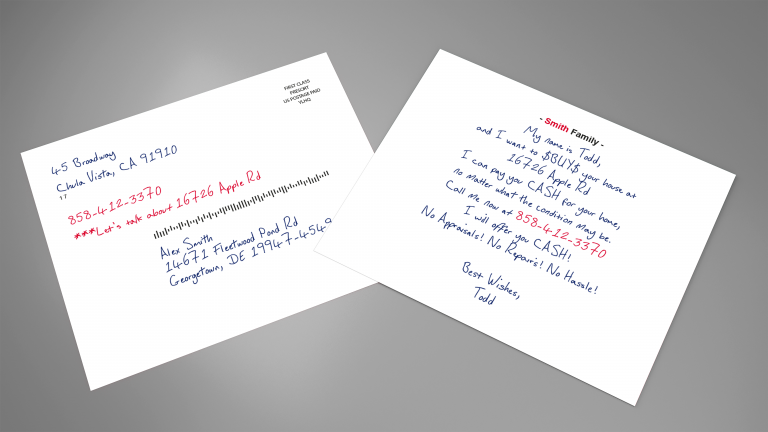 FIRST CLASS
PRESORT
US POSTAGE PAID
YLHQ
45 Broadway
Chula Vista, CA 91910
858-412-3370
***Let's talk about 16726 Apple Rd
Alex Smith
14671 Fleetwood Pond Rd
Georgetown, DE 19947-4549
- Smith Family -
My name is Todd,
and I want to $BUY$ your house at
16726 Apple Rd
I can pay you CASH for your home,
no matter what the condition may be.
Call me now at 858-412-3370
I will offer you CASH!
No Appraisals! No Repairs! No Hassle!
Best Wishes,
Todd